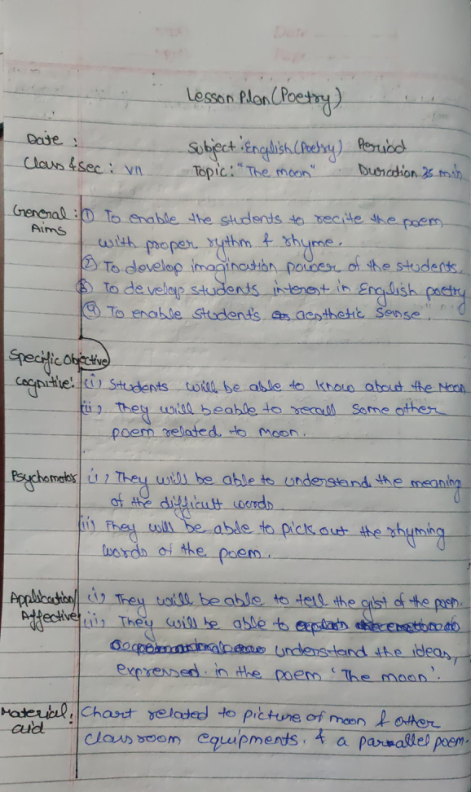 Lesson Plan (Poetry)
Date : Subject : English (Poetry) Period
Class & sec : VII Topic : "The moon" Duration 35 min
General : ① To enable the students to recite the poem
Aims with proper rythm & rhyme.
② To develop imagination power of the students.
③ To develop students interest in English poetry
④ To enable student's aesthetic sense.
Specific Objective
Cognitive : (i) Students will be able to know about the Moon
(ii) They will be able to recall some other
poem related to moon.
Psychomotor (i) They will be able to understand the meaning
of the difficult words
(ii) They will be able to pick out the rhyming
words of the poem.
Application/ (i) They will be able to tell the gist of the poem.
Affective (ii) They will be able to
understand the ideas,
expressed in the poem 'The moon'.
Material : Chart related to picture of moon & other
aid classroom equipments. & a parallel poem.